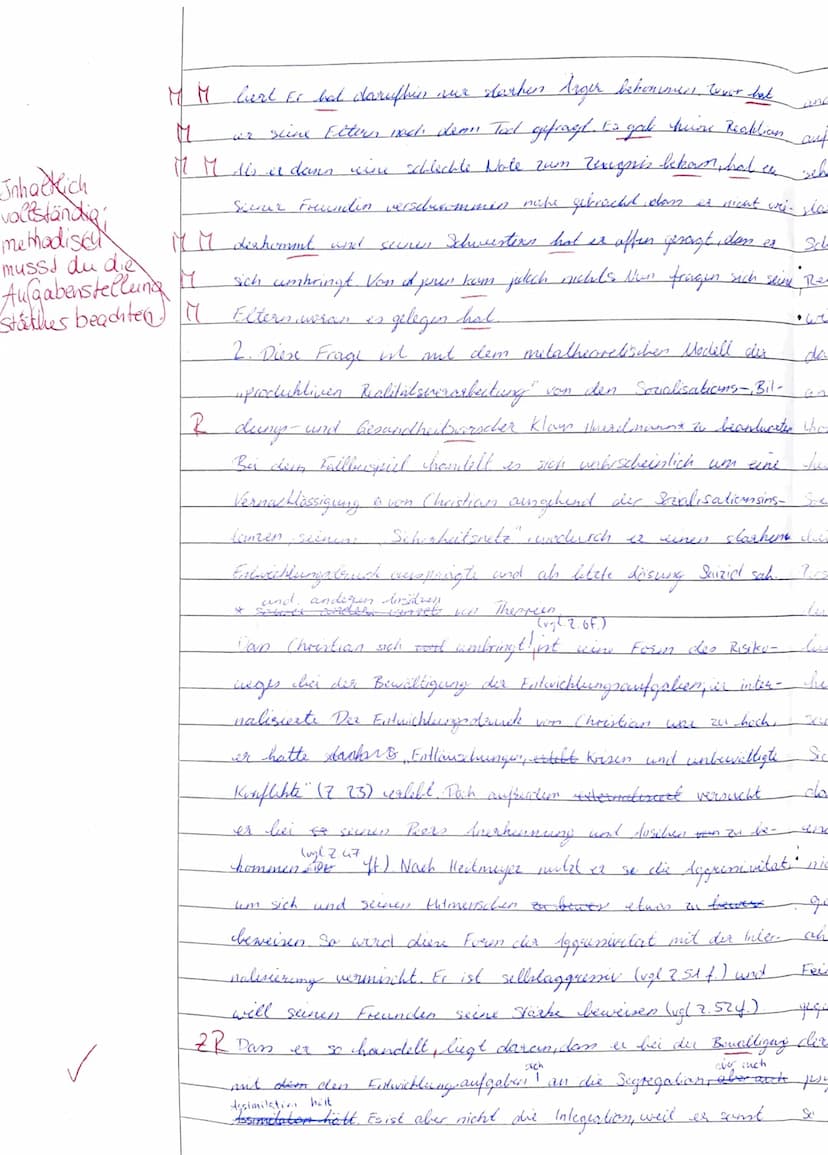 Inhaltlich
vollständig,
methodisch
musst du die
Aufgabenstellung
stärker beachten.
M M liert Er hat daraufhin nur starken Ärger bekommen. Zuvor hat
M er seine Eltern nach dem Tod gefragt. Es gab keine Reaktion
M M Als er dann eine schlechte Note zum Zeugnis bekam, hat er
seiner Freundin verschwommen nahe gebracht, dass er nicht wie-
M M derkommt und seinen Schwestern hat er offen gesagt, dass er
M sich umbringt. Von ihnen kam jedoch nichts. Nun fragen sich seine
M Eltern, woran es gelegen hat
2. Diese Frage ist mit dem metatheoretischen Modell der
„produktiven Realitätsverarbeitung" von den Sozialisations-, Bil-
R dungs- und Gesundheitsforscher Klaus Hurrelmann zu beantworten
Bei dem Fallbeispiel handelt es sich wahrscheinlich um eine
Vernachlässigung von Christian ausgehend der Sozialisationsins-
tanzen, seinem „Sicherheitsnetz", wodurch er einen starken
Entwicklungsdruck verspürgte und als letzte Lösung Suizid sah.
* und anderen von Theorien
(vgl Z. 6f.)
Dass Christian sich umbringt, ist eine Form des Risiko-
weges bei der Bewältigung der Entwicklungsaufgaben, er inter-
nalisierte Der Entwicklungsdruck von Christian war zu hoch,
er hatte „Enttäuschungen, Krisen und unbewältigte
Konflikte" (Z 23) erlebt. Doch außerdem versucht
er bei seinen Peers Anerkennung und zu be-
kommen (vgl Z 47 ff). Nach Heitmeyer nutzt er so die Aggressivität
um sich und seinen Mitmenschen etwas zu
beweisen. So wird diese Form der Aggressivität mit der Inter-
nalisierung vermischt. Er ist selbstaggressiv (vgl Z 51 f.) und
will seinen Freunden seine Stärke beweisen (vgl Z. 52f.)
ZR Dass er so handelt, liegt daran, dass er bei der Bewältigung
mit den Entwicklungsaufgaben sich an die Segregation, aber auch
Assimilation hält. Es ist aber nicht die Integration, weil er sonst